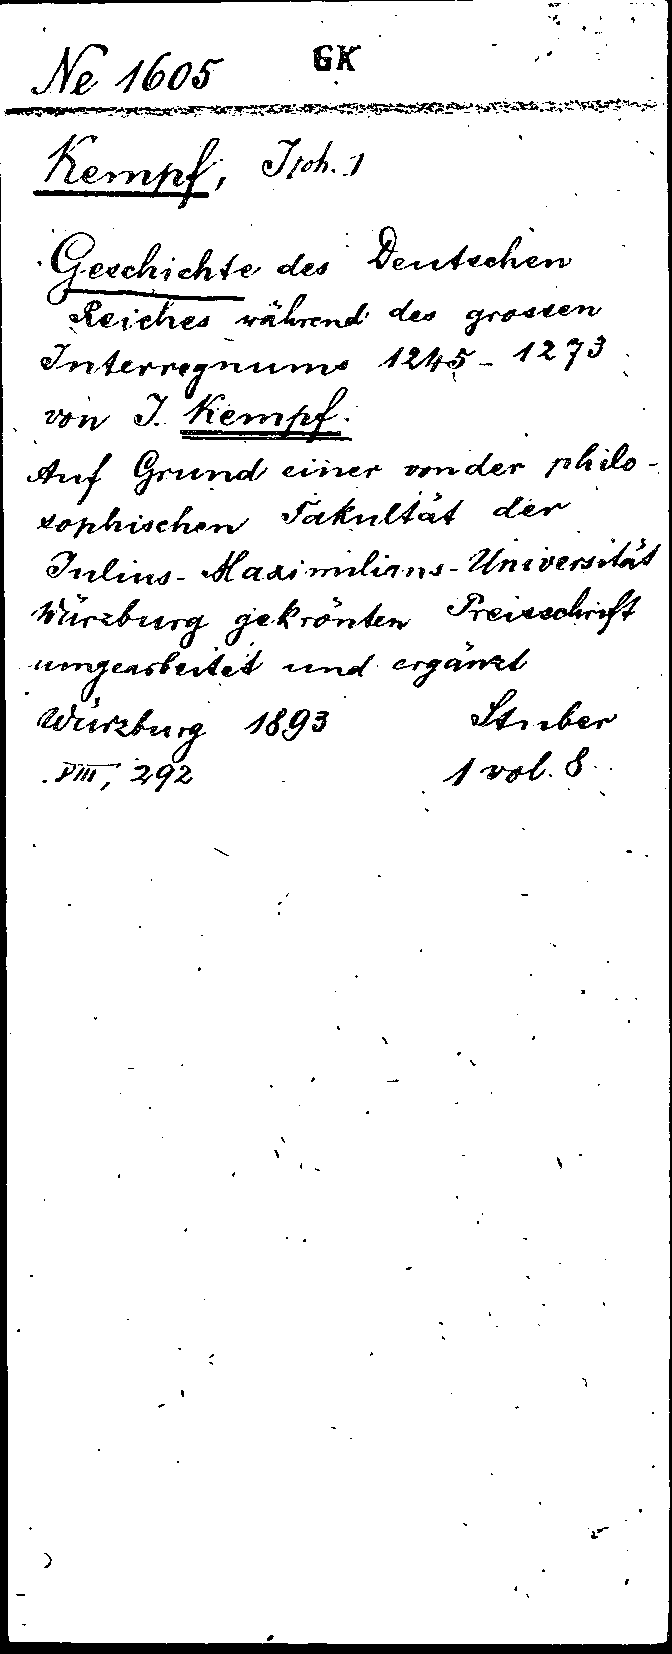 Ne 1605 GK
Kempf, J[oh.]
Geschichte des Deutschen
Reiches während des grossen
Interregnums 1245 - 1273
von J. Kempf.
Auf Grund einer von der philo-
sophischen Fakultät der
Julius-Maximilians-Universität
Würzburg gekrönten Preisschrift
umgearbeitet und ergänzt
Würzburg 1893 Stuber
VIII, 292 1 vol. 8